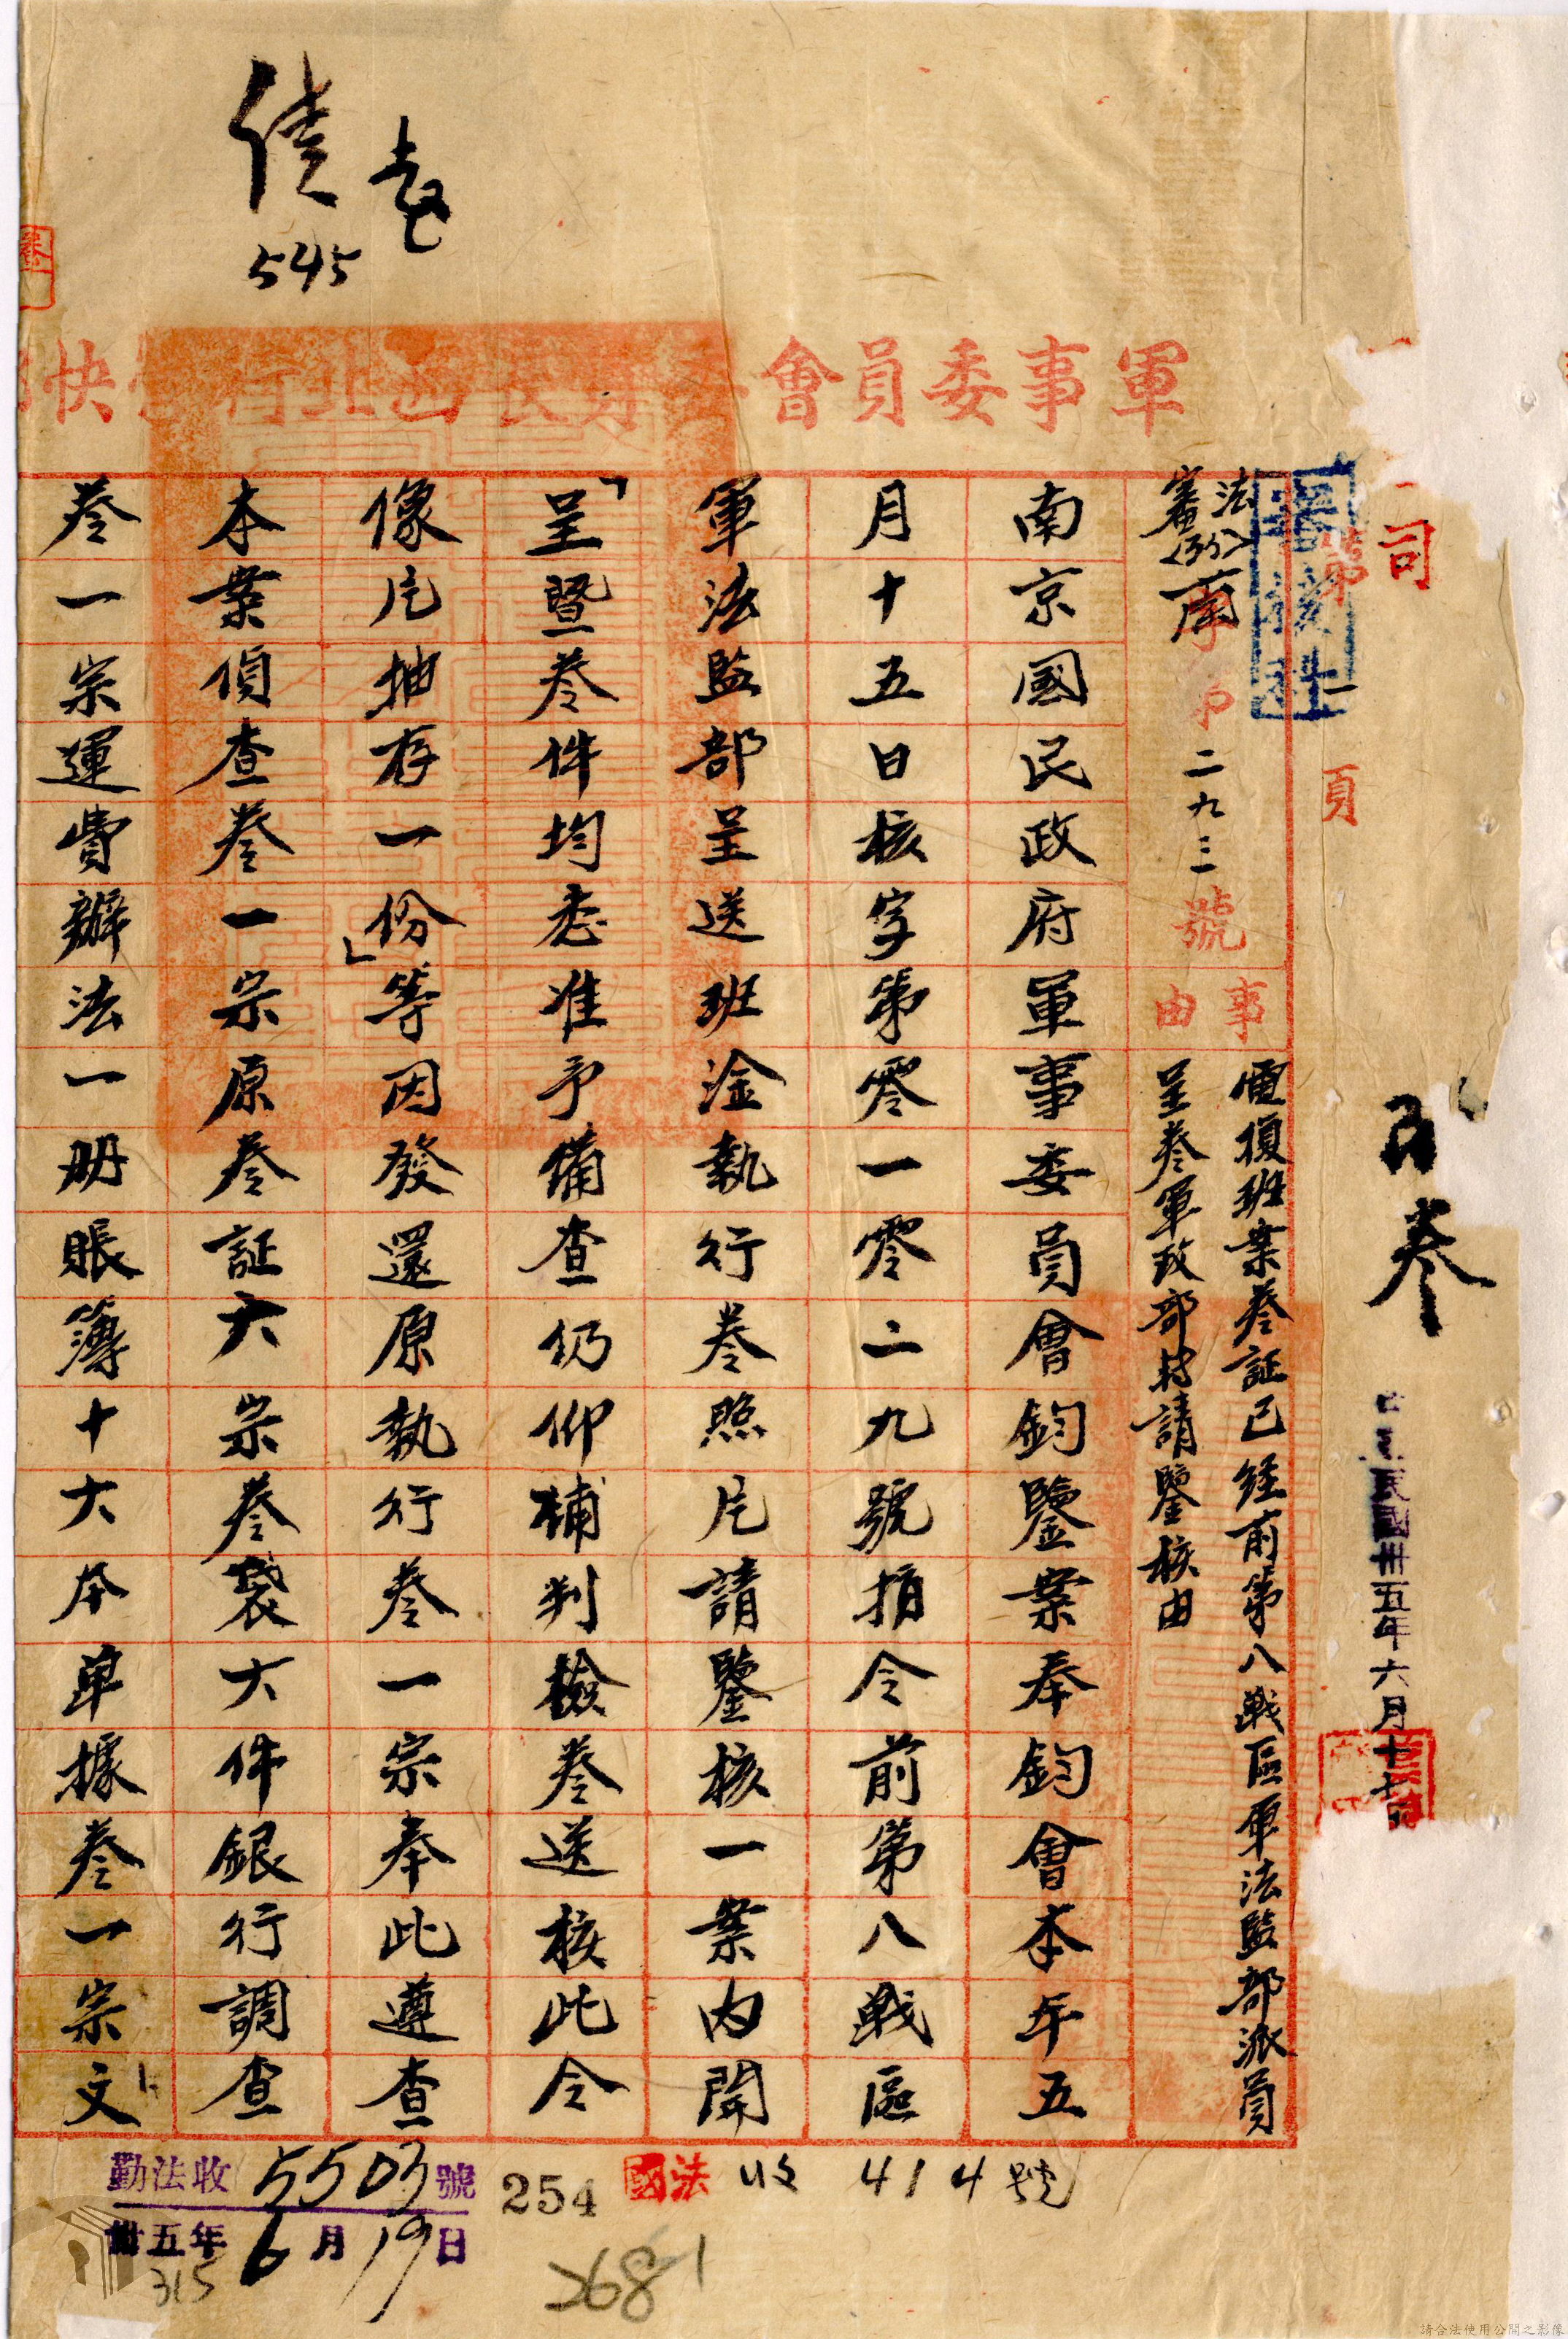 軍事委員會委員長西北行營快
司
第一頁
法審(35)蘭字第二九三號
事由
電復班案卷証已經前第八戰區軍法監部派員
呈叁軍政部轉請鑒核由
南京國民政府軍事委員會鈞鑒案奉鈞會本年五
月十五日核字第零一零二九號指令前第八戰區
軍法監部呈送班淦執行卷照片請鑒核一案內開
「呈暨卷件均悉准予備查仍仰補判檢卷送核此令
像片抽存一份」等因發還原執行卷一宗奉此遵查
本案偵查卷一宗原卷証六宗卷袋六件銀行調查
卷一宗運費辦法一册賬簿十六本單據叁一宗文
中華民國卅五年六月十七
545
勤法收5503號
卅五年6月19日
254
國法 收 414號
315
2681
請合法使用公開之影像